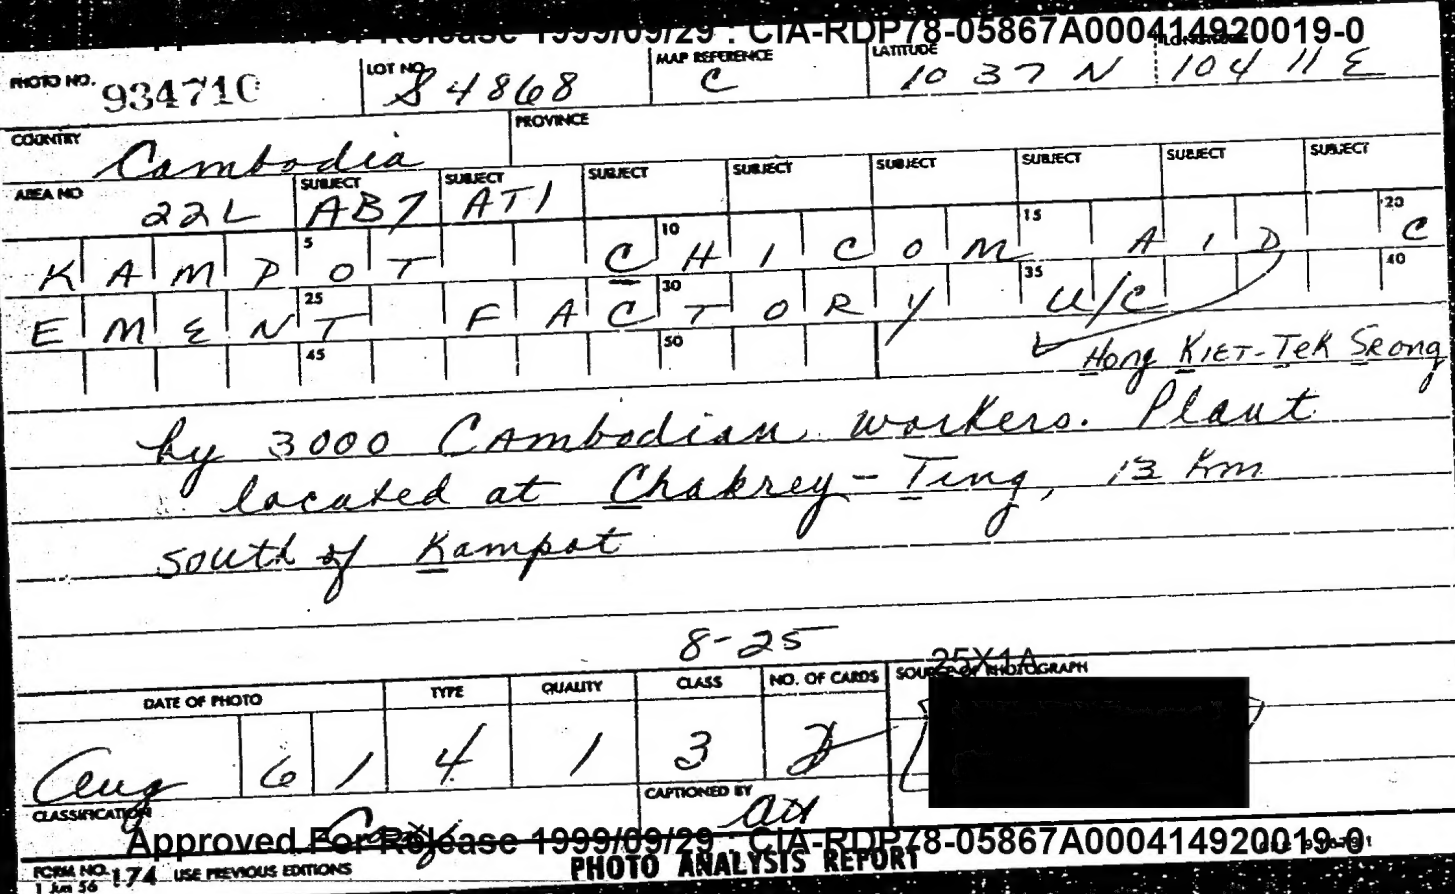 Approved For Release 1999/09/29 : CIA-RDP78-05867A000414920019-0
PHOTO NO. 934710 LOT NO. S 4868 MAP REFERENCE C LATITUDE 10 37 N LONGITUDE 104 11 E
COUNTRY Cambodia PROVINCE
AREA NO 22L SUBJECT AB7 SUBJECT AT1 SUBJECT SUBJECT SUBJECT SUBJECT SUBJECT SUBJECT
5 10 15 20
KAMPOT CHICOM AID C
25 30 35 40
EMENT FACTORY U/C
45 50
Hong KIET-TEK SRONG
by 3000 CAmbodian workers. Plant
located at Chakrey-Ting, 13 Km
south of Kampot
8-25
25X1A
DATE OF PHOTO TYPE QUALITY CLASS NO. OF CARDS SOURCE OF PHOTOGRAPH
Aug 6 1 4 1 3 2
CLASSIFICATION CAPTIONED BY
Approved For Release 1999/09/29 : CIA-RDP78-05867A000414920019-0
FORM NO. 174 USE PREVIOUS EDITIONS PHOTO ANALYSIS REPORT
1 Jun 56